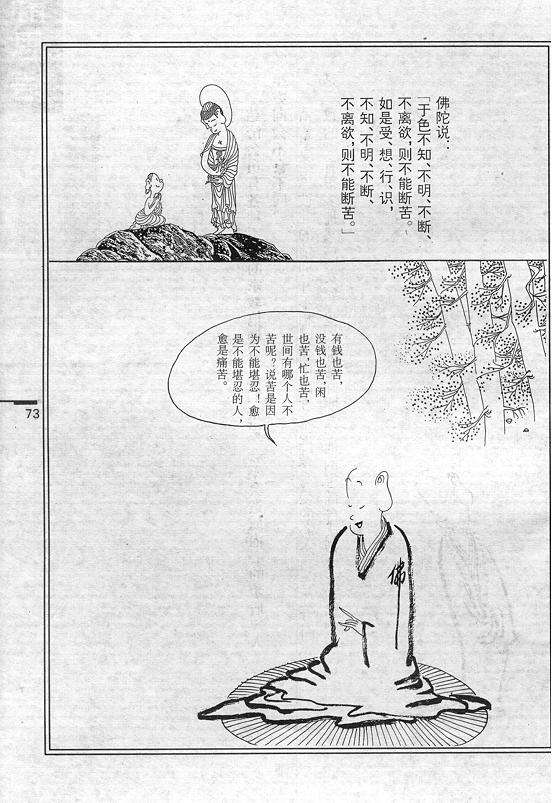 佛陀说：
「于色不知、不明、不断、
不离欲，则不能断苦。
如是受、想、行、识，
不知、不明、不断、
不离欲，则不能断苦。」
有钱也苦，
没钱也苦，闲
也苦，忙也苦，
世间有哪个人不
苦呢？说苦是因
为不能堪忍！愈
是不能堪忍的人，
愈是痛苦。
73
佛